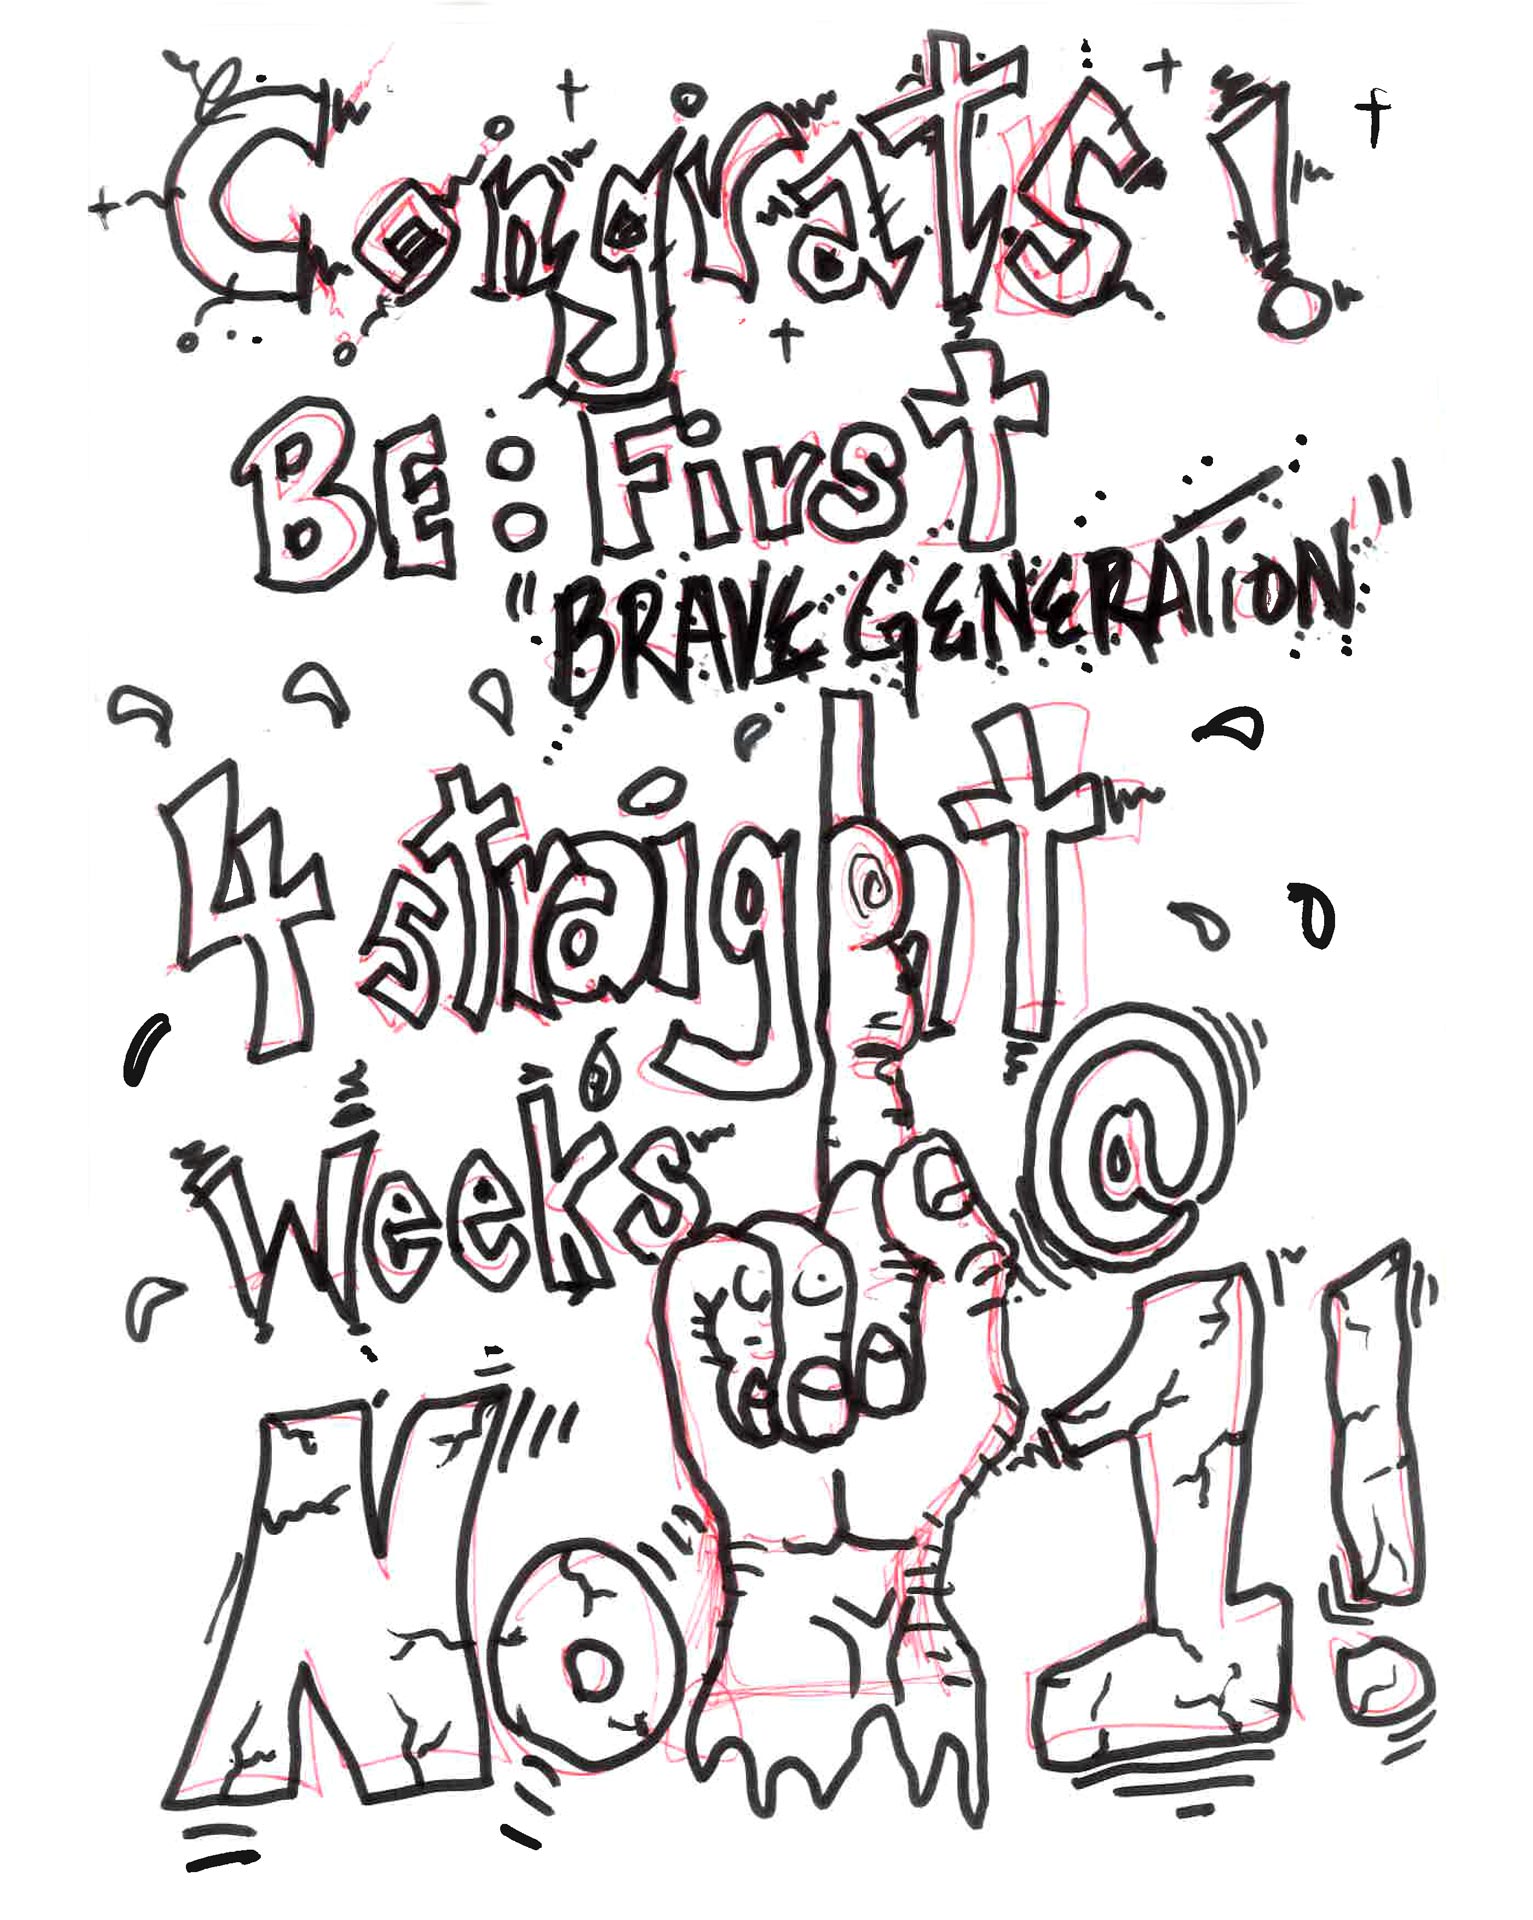 Congrats!
BE:First
"BRAVE GENERATION"
4 straight
weeks @
No 1!